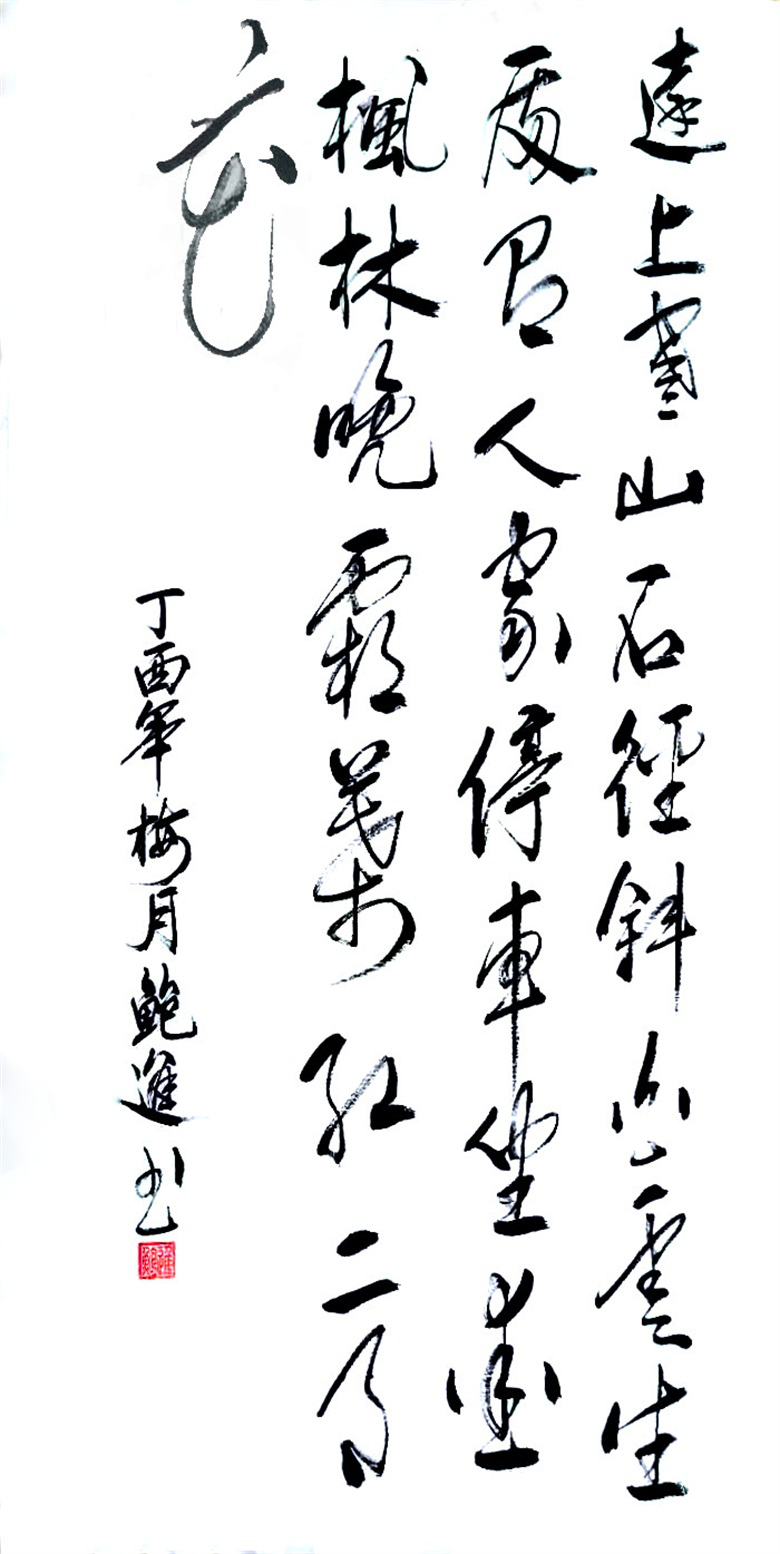 遠上寒山石徑斜白雲生
處有人家停車坐愛
楓林晚霜葉紅二月
花
丁酉年梅月鮑進书